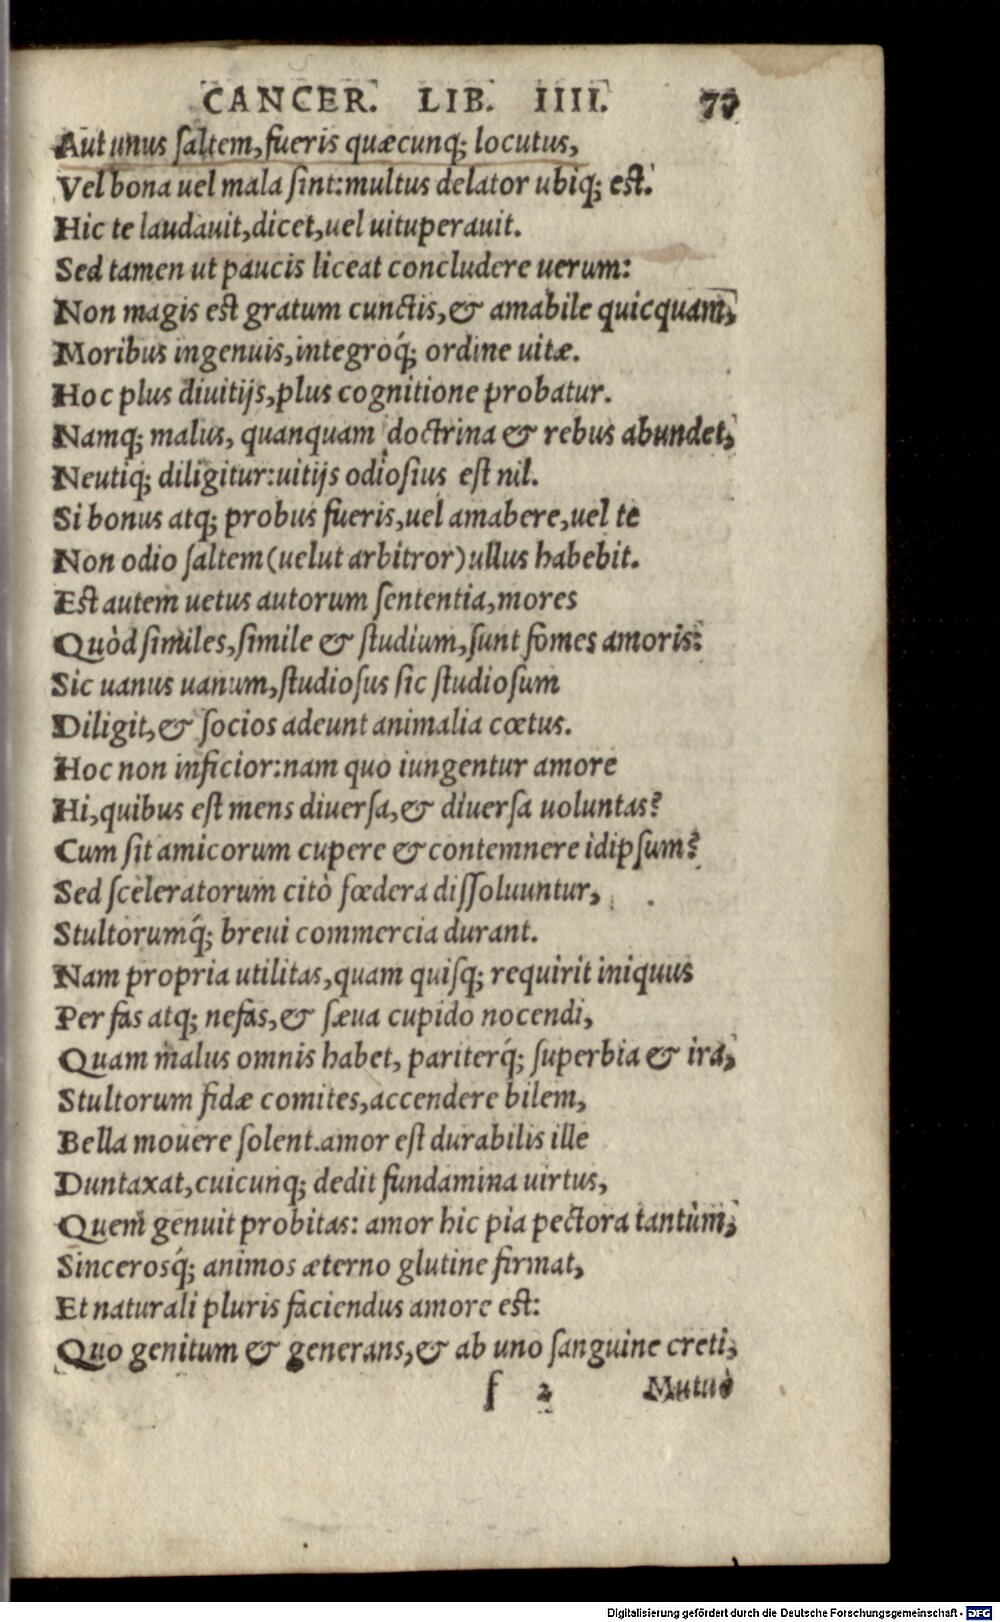 CANCER. LIB. IIII. 77
Aut unus ſaltem, fueris quæcunq; locutus,
Vel bona uel mala ſint: multus delator ubiq; eſt.
Hic te laudauit, dicet, uel uituperauit.
Sed tamen ut paucis liceat concludere uerum:
Non magis eſt gratum cunctis, & amabile quicquam,
Moribus ingenuis, integroq́; ordine uitæ.
Hoc plus diuitijs, plus cognitione probatur.
Namq; malus, quanquam doctrina & rebus abundet,
Neutiq; diligitur: uitijs odioſius eſt nil.
Si bonus atq; probus fueris, uel amabere, uel te
Non odio ſaltem (uelut arbitror) ullus habebit.
Eſt autem uetus autorum ſententia, mores
Quòd ſimiles, ſimile & ſtudium, ſunt fomes amoris:
Sic uanus uanum, ſtudioſus ſic ſtudioſum
Diligit, & ſocios adeunt animalia cœtus.
Hoc non inficior: nam quo iungentur amore
Hi, quibus eſt mens diuerſa, & diuerſa uoluntas?
Cum ſit amicorum cupere & contemnere idipſum?
Sed ſceleratorum citò fœdera diſſoluuntur,
Stultorumq́; breui commercia durant.
Nam propria utilitas, quam quiſq; requirit iniquus
Per fas atq; nefas, & ſæua cupido nocendi,
Quam malus omnis habet, pariterq́; ſuperbia & ira,
Stultorum fidæ comites, accendere bilem,
Bella mouere ſolent. amor eſt durabilis ille
Duntaxat, cuicunq; dedit fundamina uirtus,
Quem genuit probitas: amor hic pia pectora tantùm,
Sincerosq́; animos æterno glutine firmat,
Et naturali pluris faciendus amore eſt:
Quo genitum & generans, & ab uno ſanguine creti,
f 2 Mutuò
Digitalisierung gefördert durch die Deutsche Forschungsgemeinschaft - DFG